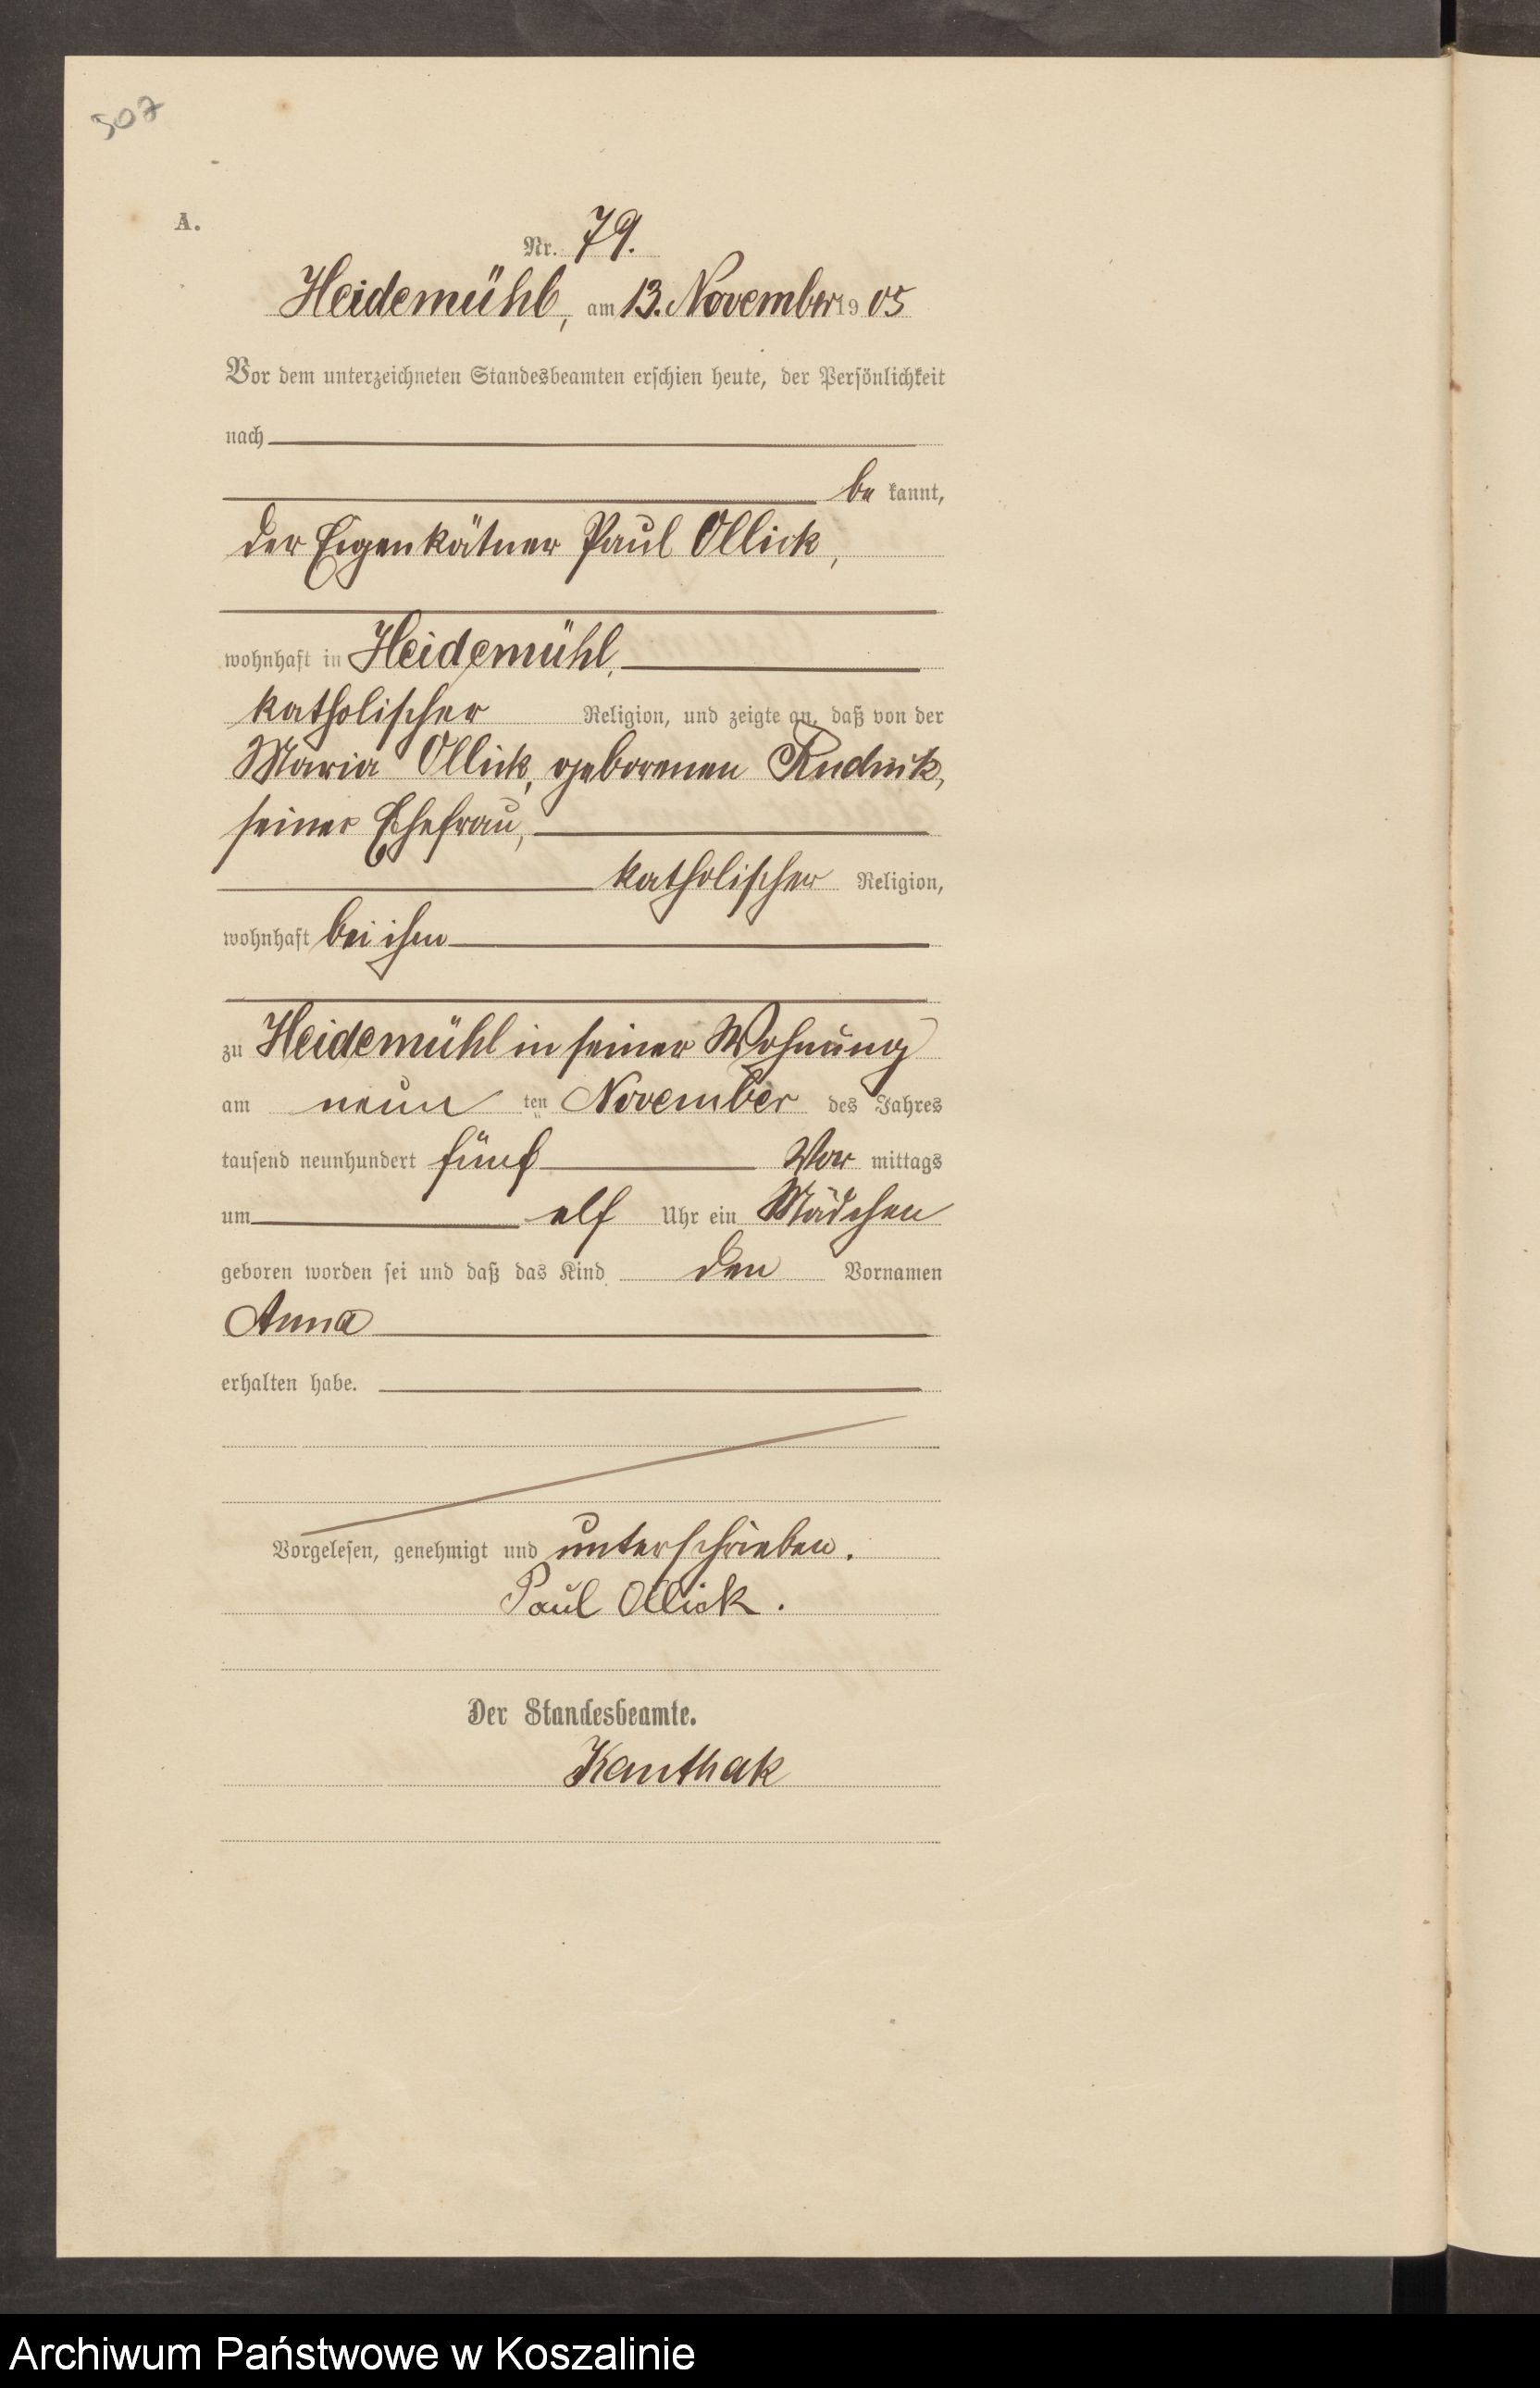 507
A.
Nr. 79.
Heidemühl, am 13. November 1905
Vor dem unterzeichneten Standesbeamten erschien heute, der Persönlichkeit
nach
be kannt,
der Eigenkätner Paul Ollick,
wohnhaft in Heidemühl,
katholischer Religion, und zeigte an, daß von der
Maria Ollick, geborenen Rudnik,
seiner Ehefrau,
katholischer Religion,
wohnhaft bei ihm
zu Heidemühl in seiner Wohnung
am neun ten November des Jahres
tausend neunhundert fünf Vor mittags
um elf Uhr ein Mädchen
geboren worden sei und daß das Kind den Vornamen
Anna
erhalten habe.
Vorgelesen, genehmigt und unterschrieben.
Paul Ollick.
Der Standesbeamte.
Kanthak
Archiwum Państwowe w Koszalinie